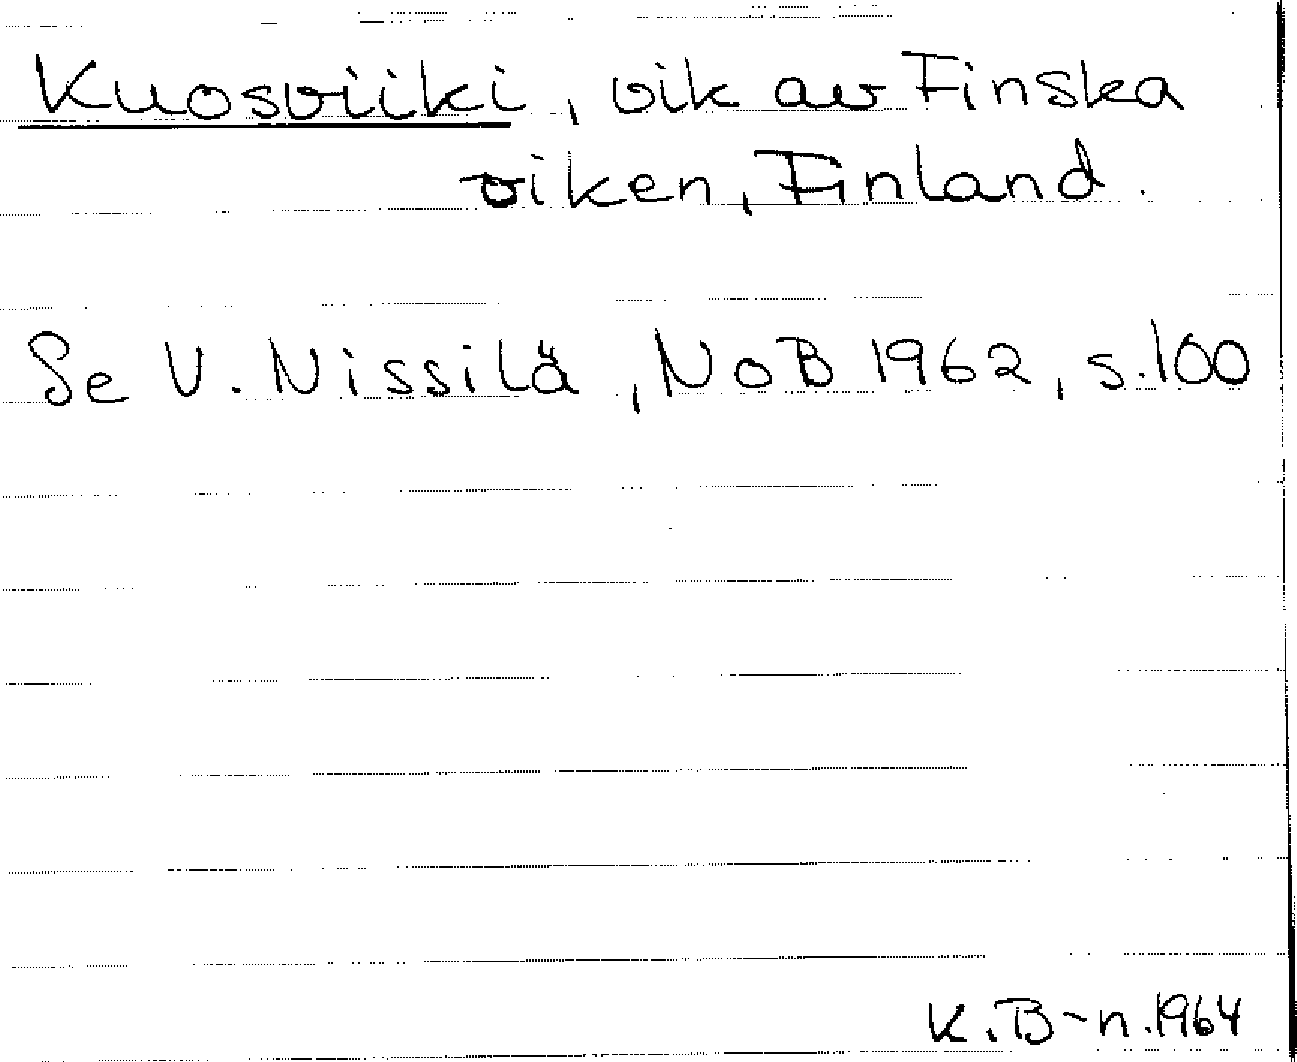 Kuosviiki, vik av Finska
viken, Finland.
Se V. Nissilä, NoB 1962, s.100
K.B-n.1964